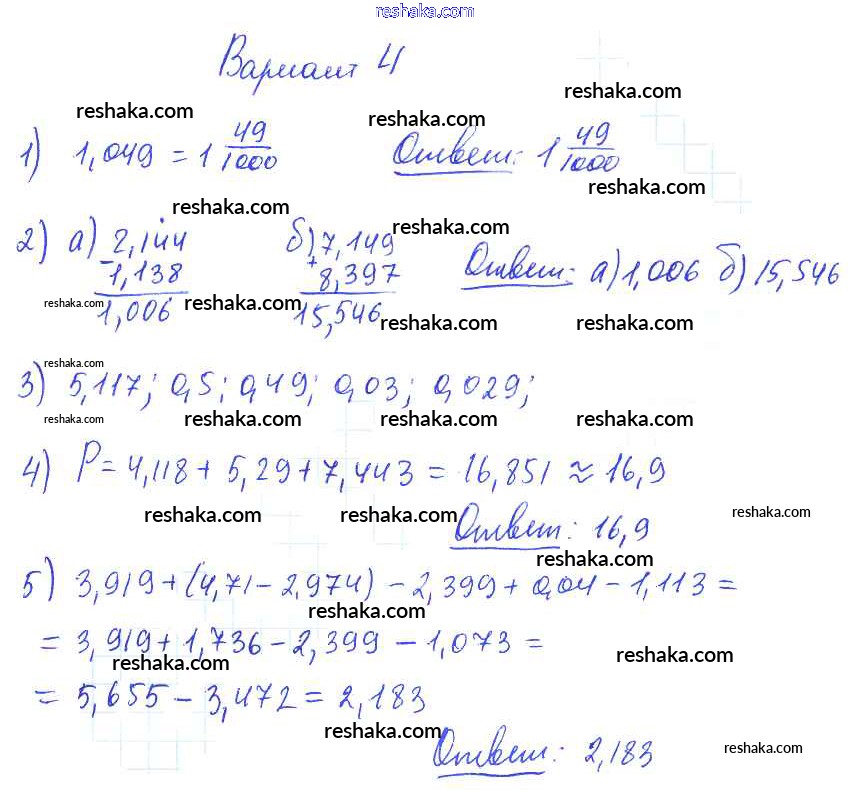 reshaka.com
Вариант 4
reshaka.com reshaka.com reshaka.com
1) 1,049 = 1 49/1000 Ответ: 1 49/1000
reshaka.com
reshaka.com reshaka.com
2) а) 2,144 - 1,138 = 1,006 б) 7,149 + 8,397 = 15,546 Ответ: а) 1,006 б) 15,546
reshaka.com reshaka.com reshaka.com reshaka.com
reshaka.com
3) 5,117; 0,5; 0,49; 0,03; 0,029;
reshaka.com reshaka.com reshaka.com reshaka.com
4) P = 4,118 + 5,29 + 7,443 = 16,851 ≈ 16,9
reshaka.com reshaka.com reshaka.com
Ответ: 16,9
reshaka.com
5) 3,919 + (4,71 - 2,974) - 2,399 + 0,04 - 1,113 =
reshaka.com
= 3,919 + 1,736 - 2,399 - 1,073 =
reshaka.com reshaka.com
= 5,655 - 3,472 = 2,183
reshaka.com
Ответ: 2,183 reshaka.com